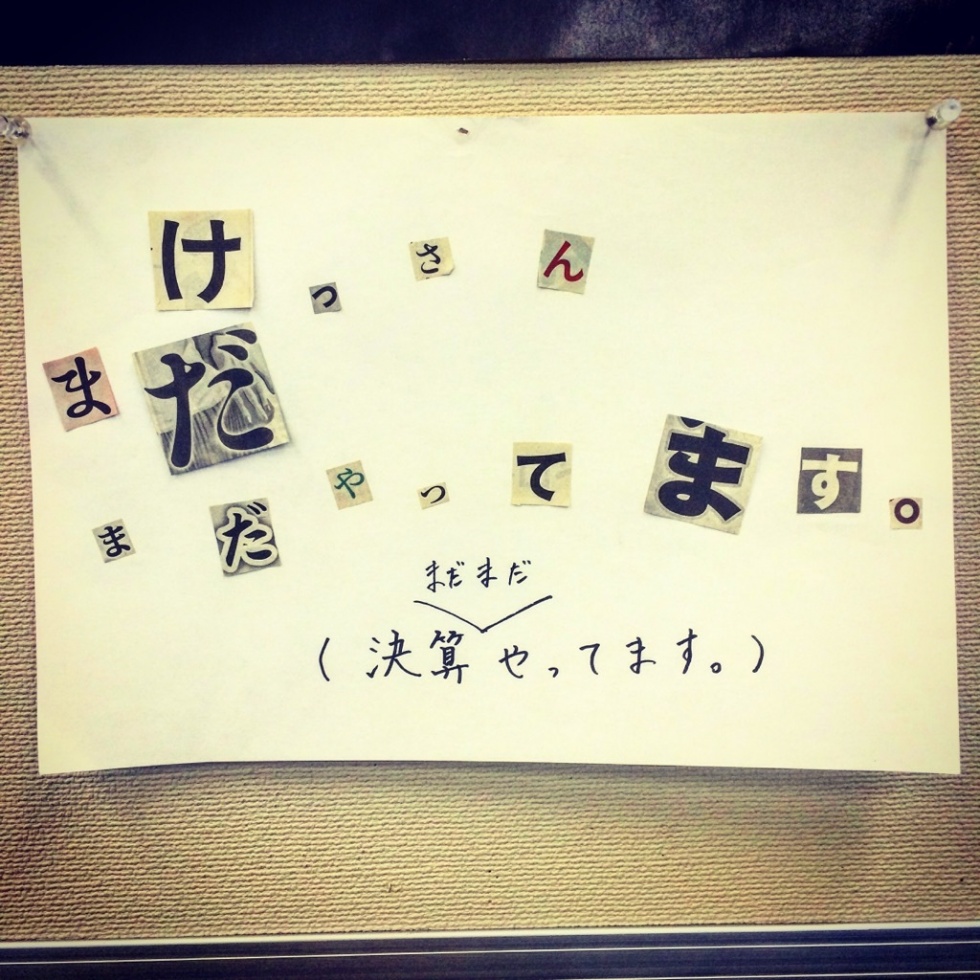 けっさん
まだ
まだやってます。
まだまだ
(決算やってます。)